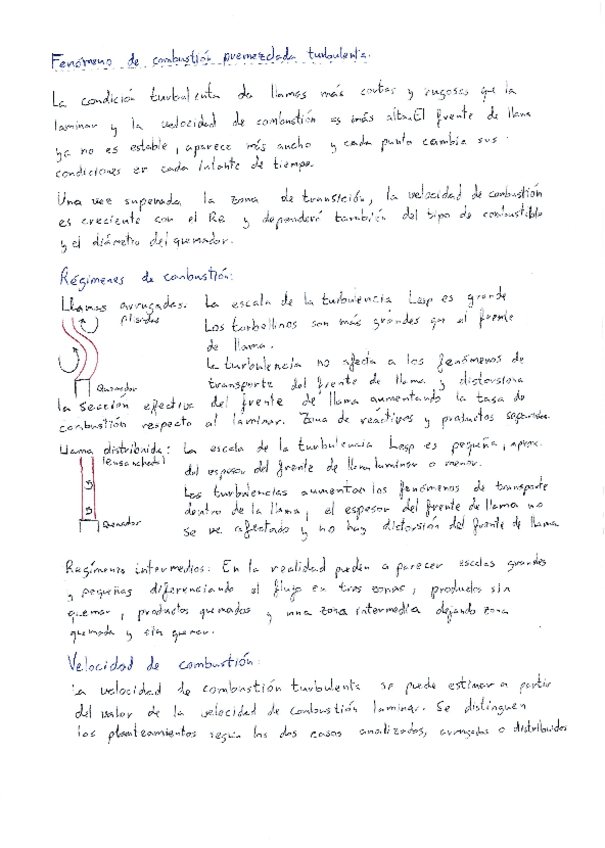 Fenómeno de combustión premezclada turbulenta.
La condición turbulenta da llamas más cortas y rugosas que la
laminar y la velocidad de combustión es más alta. El frente de llama
ya no es estable, aparece más ancho y cada punto cambia sus
condiciones en cada intante de tiempo.
Una vez superada la zona de transición, la velocidad de combustión
es creciente con el Re y dependerá también del tipo de combustible
y el diámetro del quemador.
Régimenes de combustión:
Llamas arrugadas: La escala de la turbulencia Lesp es grande
plisadas
Los torbellinos son más grandes que el frente
de llama.
La turbulencia no afecta a los fenómenos de
Quemador
transporte del frente de llama y distorsiona
la sección efectiva del frente de llama aumentando la tasa de
combustión respecto al laminar. Zona de reactivos y productos separados.
Llama distribuida: La escala de la turbulencia Lesp es pequeña, aprox.
(ensanchada)
del espesor del frente de llama laminar o menor.
Las turbulencias aumentan los fenómenos de transporte
dentro de la llama, el espesor del frente de llama no
Quemador
se ve afectado y no hay distorsión del frente de llama
Regímenes intermedios: En la realidad pueden aparecer escalas grandes
y pequeñas diferenciando el flujo en tres zonas, productos sin
quemar, productos quemados y una zona intermedia dejando zona
quemada y sin quemar.
Velocidad de combustión:
La velocidad de combustión turbulenta se puede estimar a partir
del valor de la velocidad de combustión laminar. Se distinguen
los planteamientos según los dos casos analizados, arrugadas o distribuidas